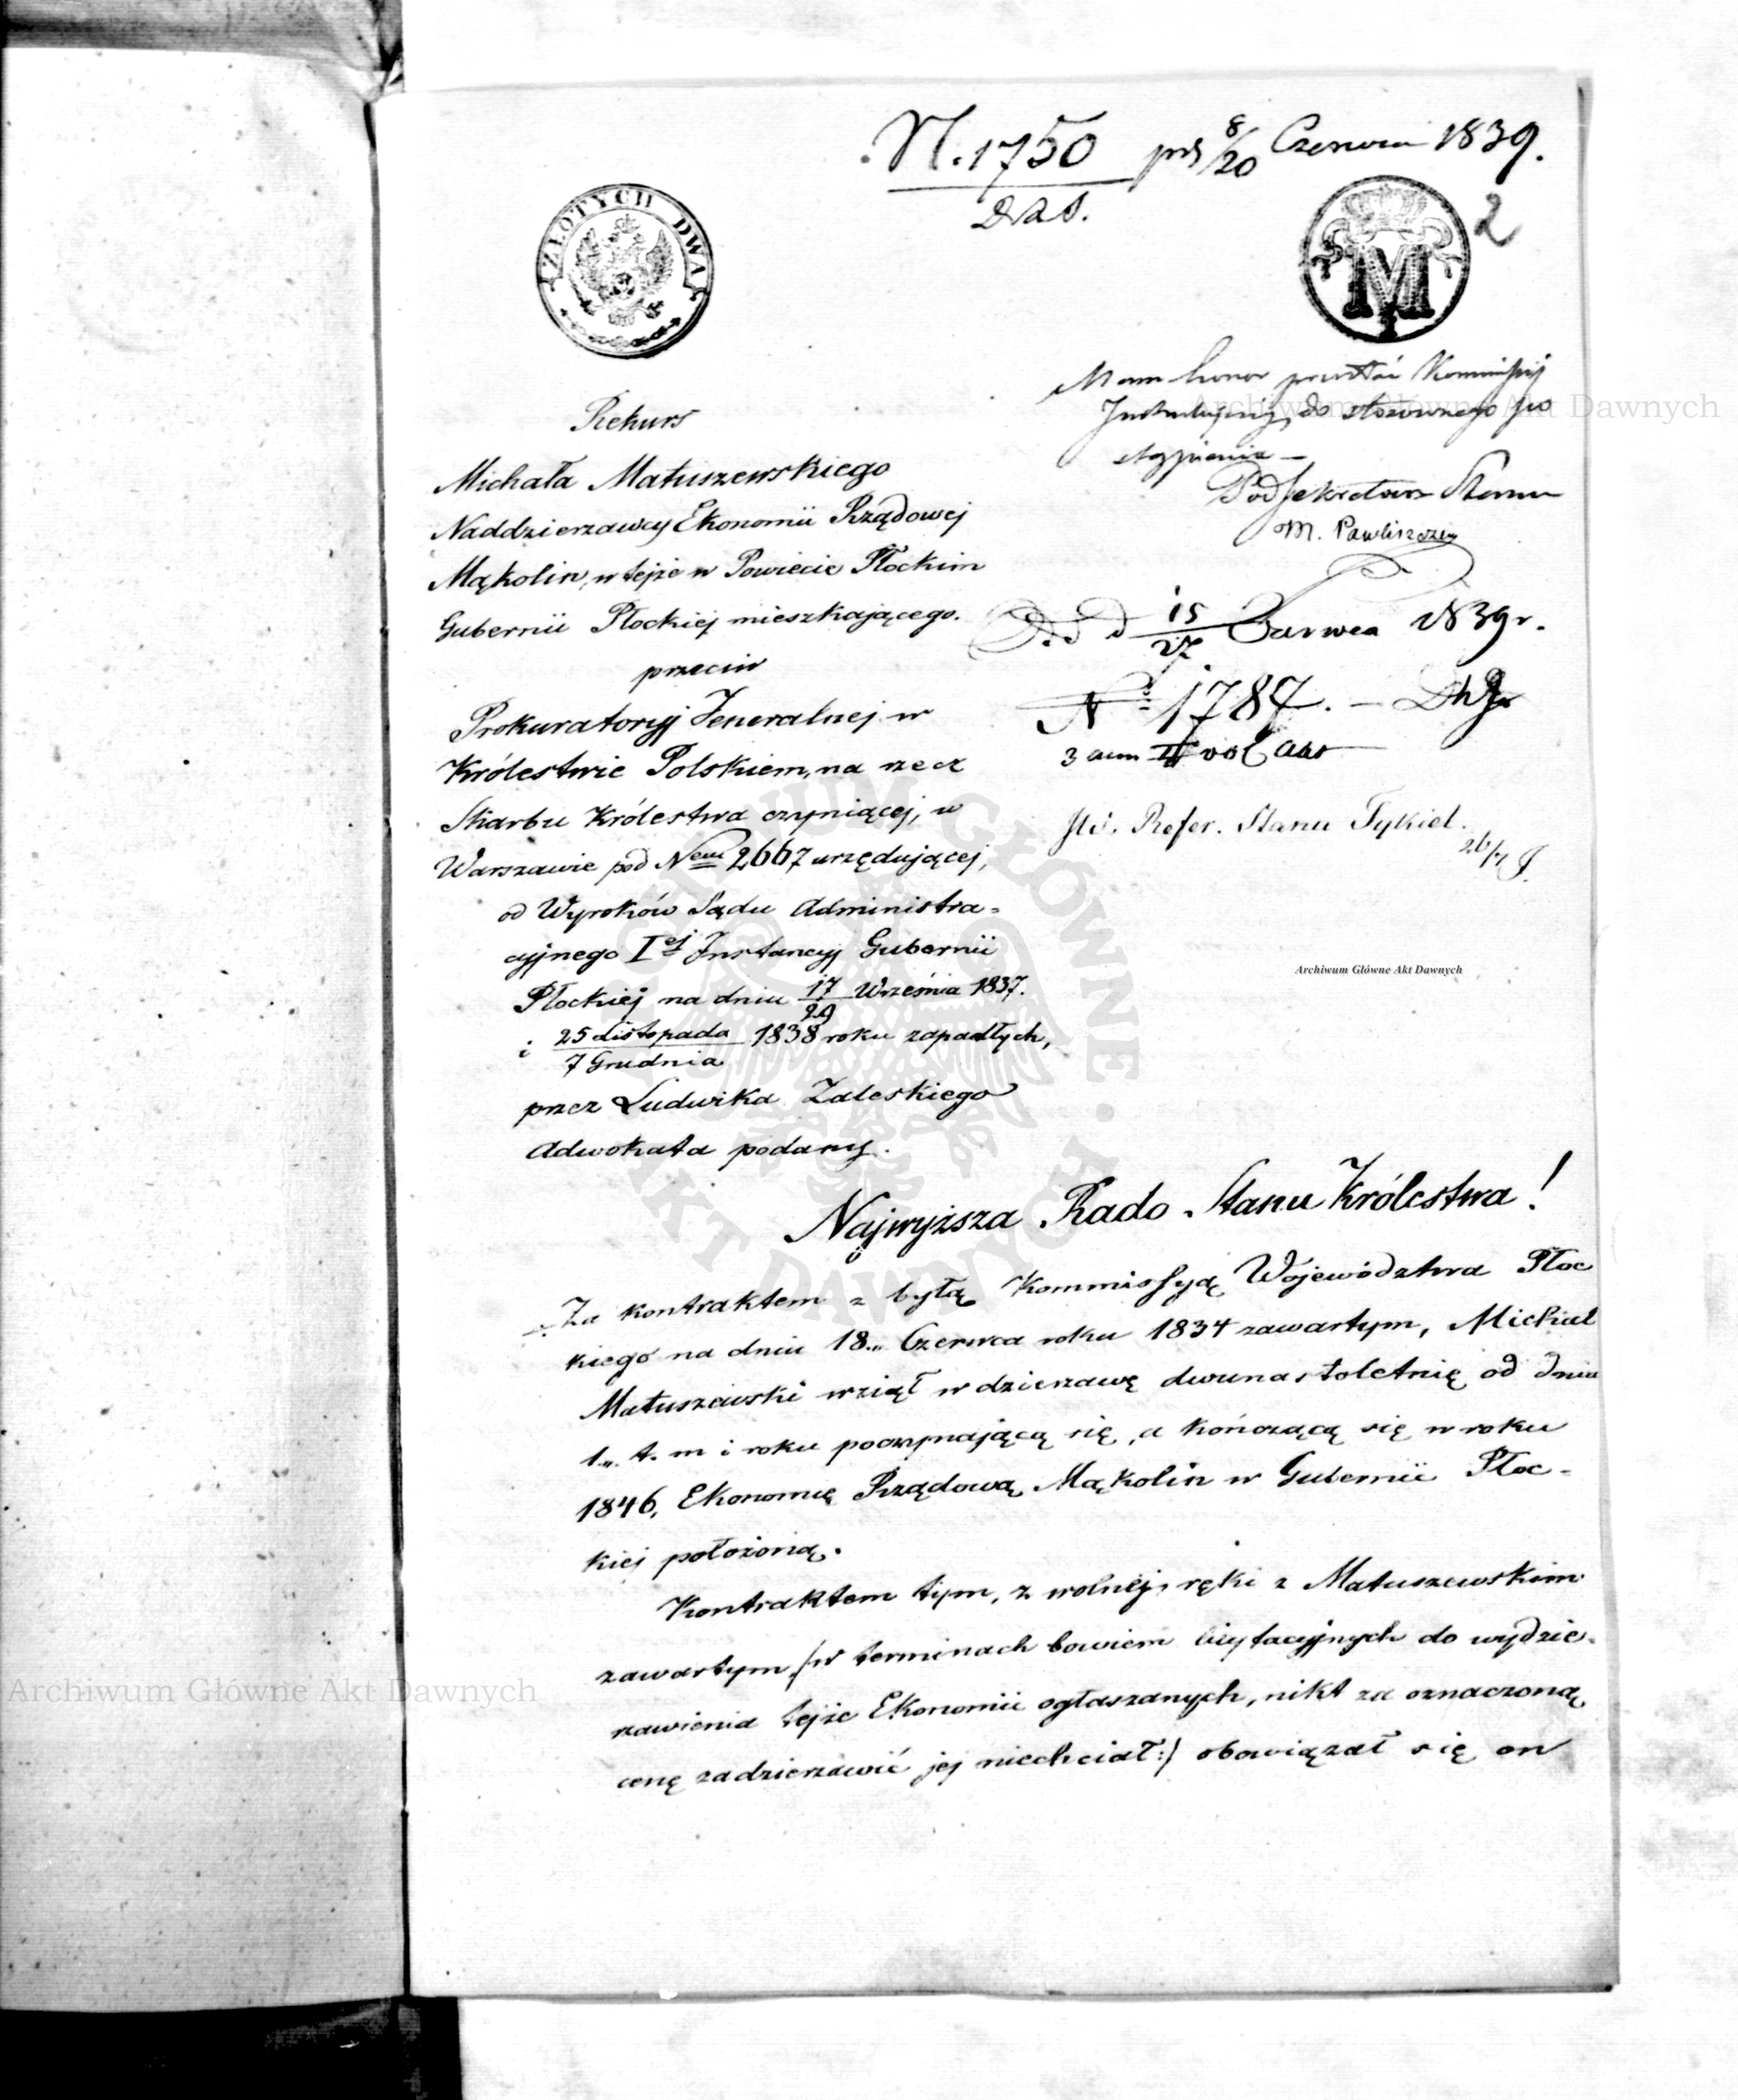 N. 1750 prs 8/20 Czerwca 1839.
ZŁOTYCH DWA
2
M
Mam honor przesłać Kommissyi
Instrukcyjnej do stosownego po
stąpienia —
PodSekretarz Stanu
M. Pawliszczew
d 15/27 Czerwca 1839 r.
No 1787. —
3 vol
JW. Refer. Stanu Tykiel.
26/7
Rekurs
Michała Matuszewskiego
Naddzierzawcy Ekonomii Rządowej
Mąkolin, w tejże w Powiecie Płockim
Gubernii Płockiej mieszkającego.
przeciw
Prokuratoryj Jeneralnej w
Królestwie Polskiem, na rzecz
Skarbu Królestwa czyniącej, w
Warszawie pod Nem 2667 urzędującej,
od Wyroków Sądu Administra-
cyjnego Iej Instancyj Gubernii
Płockiej na dniu 17/29 Września 1837.
i 25 Listopada/7 Grudnia 1838 roku zapadłych,
przez Ludwika Zaleskiego
Adwokata podany.
Najwyższa Rado Stanu Królestwa!
Za kontraktem z byłą Kommissyą Województwa Płoc
kiego na dniu 18„ Czerwca roku 1834 zawartym, Michał
Matuszewski wziął w dzierzawę dwunastoletnię od dnia
1„ t. m i roku poczynającą się, a kończącą się w roku
1846, Ekonomię Rządową Mąkolin w Gubernii Płoc-
kiej położoną.
Kontraktem tym, z wolnej ręki z Matuszewskim
zawartym /w terminach bowiem licytacyjnych do wydzie-
rzawienia tejże Ekonomii ogłaszanych, nikt za oznaczoną
cenę zadzierzawić jej niechciał:/ obowiązał się on
Archiwum Główne Akt Dawnych
Archiwum Główne Akt Dawnych
Archiwum Główne Akt Dawnych
ARCHIWUM GŁÓWNE AKT DAWNYCH